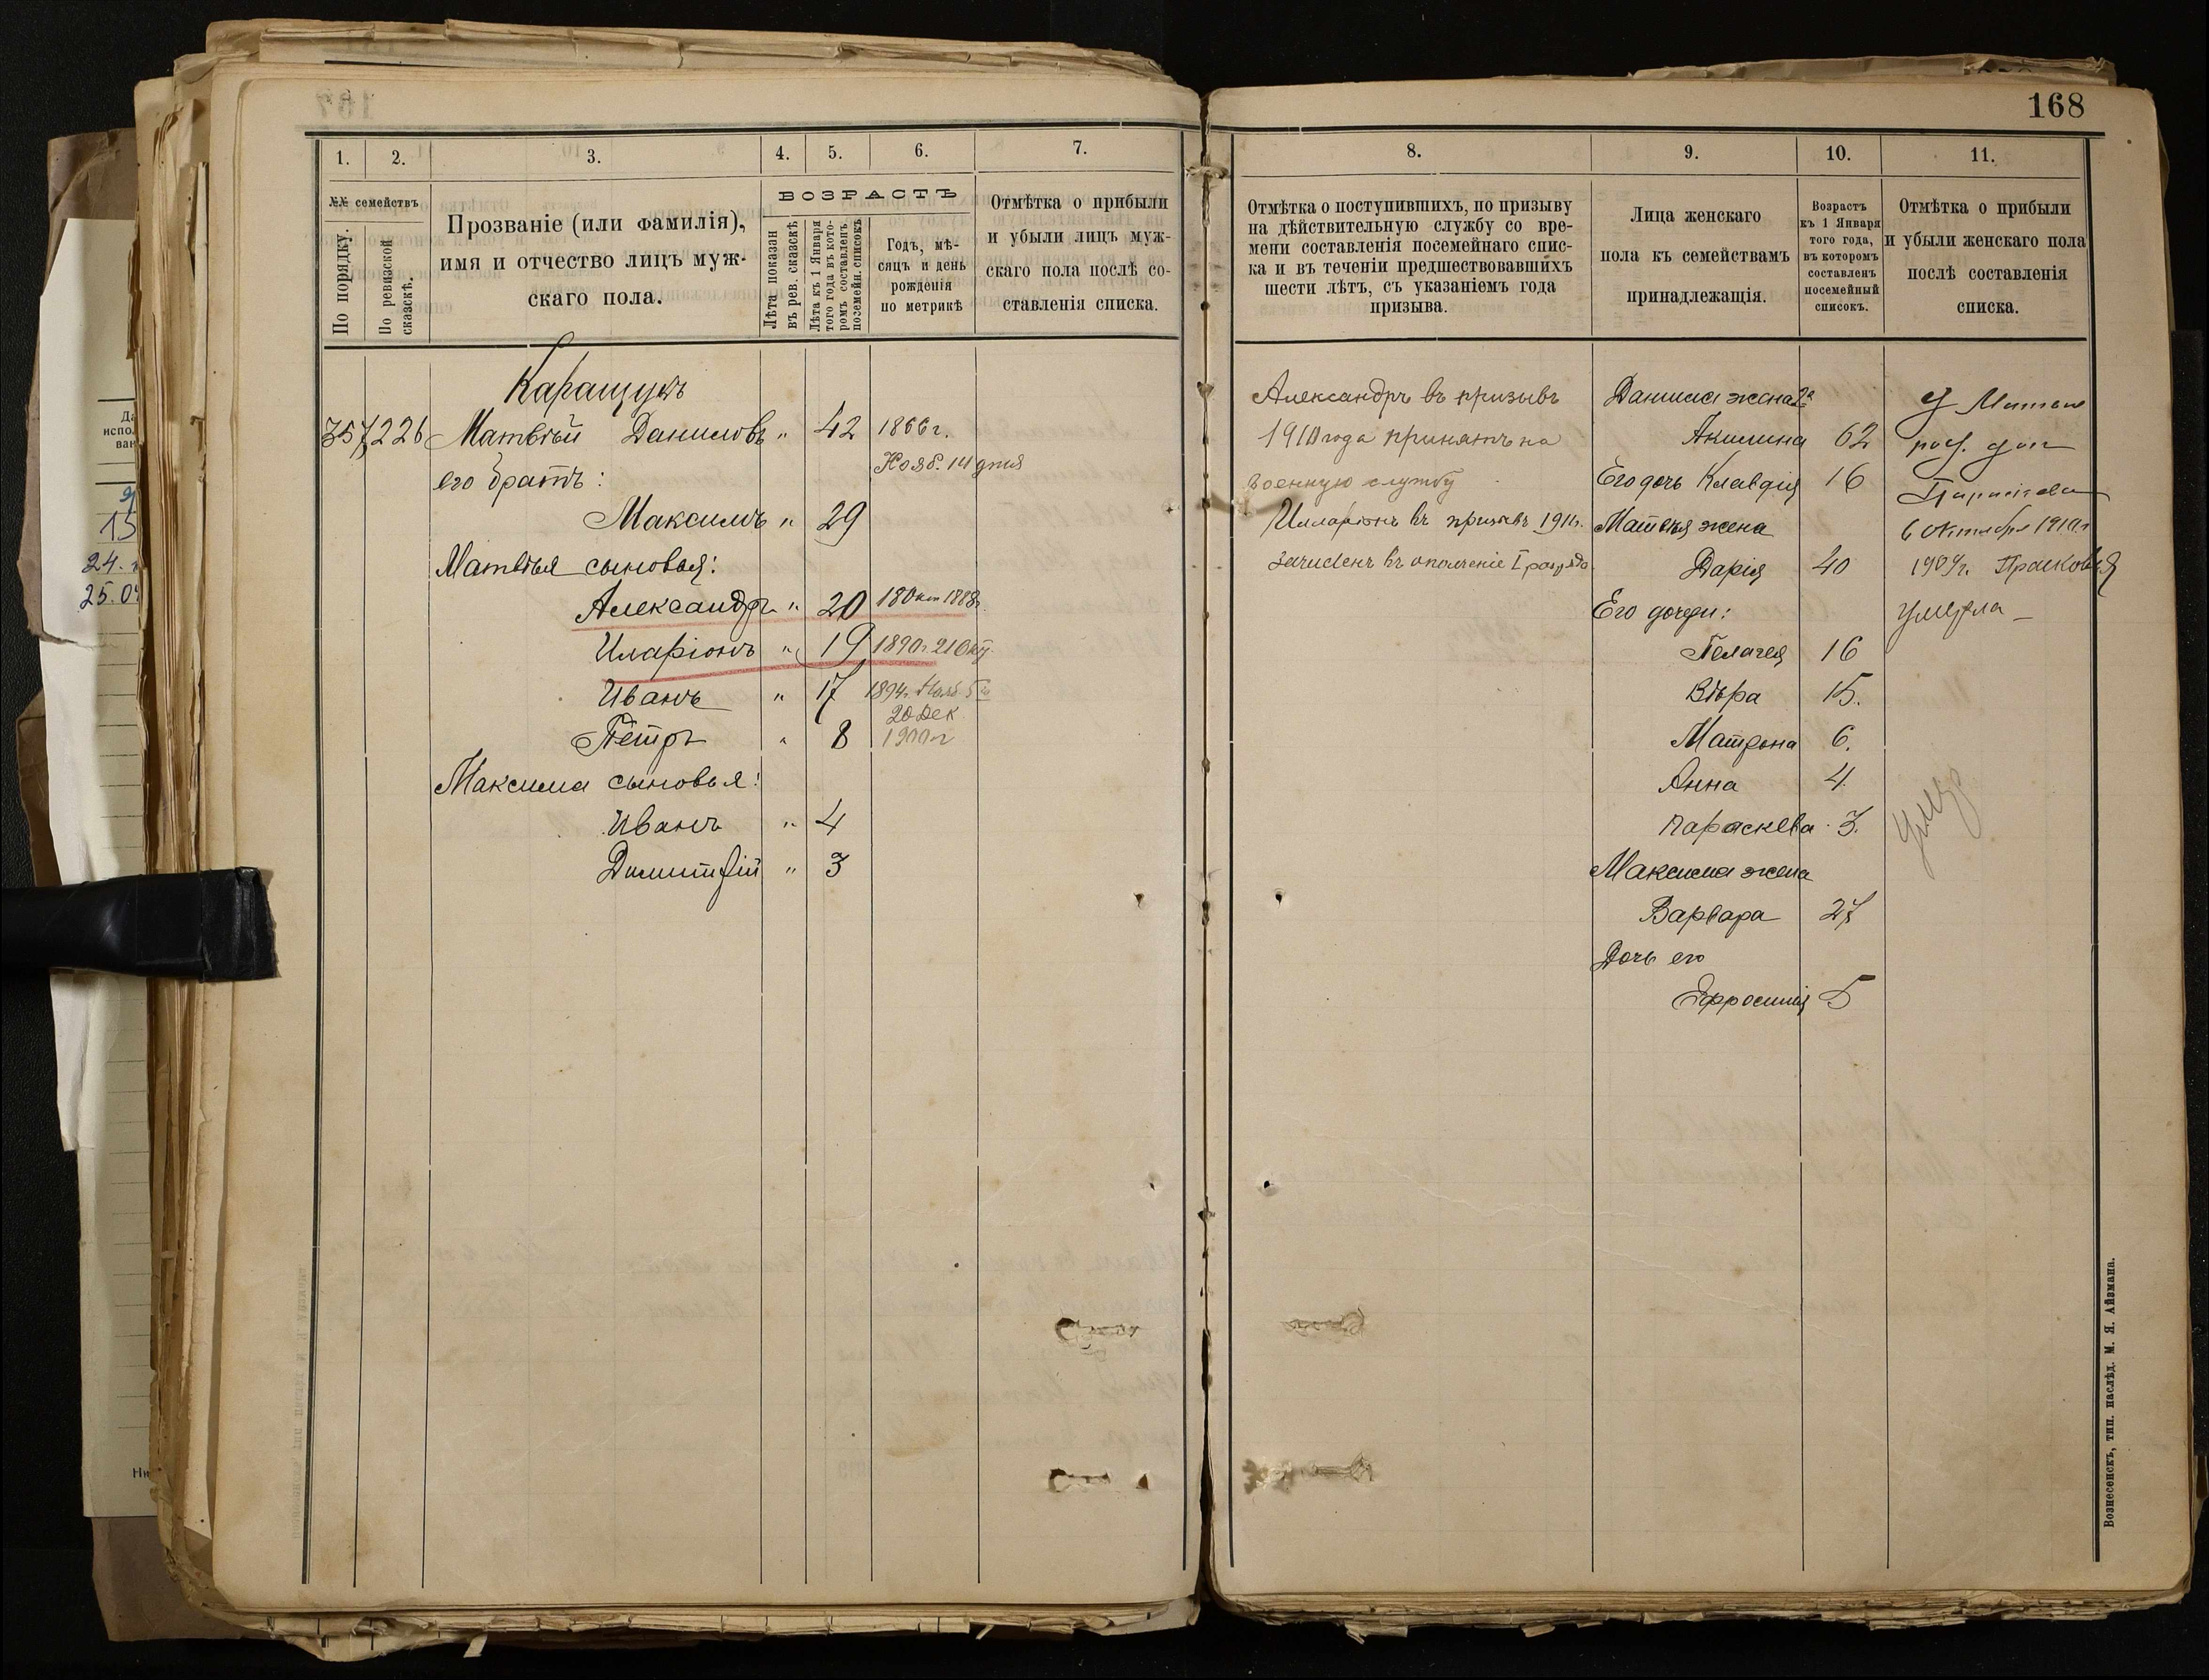 168
1.
2.
3.
4.
5.
6.
7.
№№ семействъ
По порядку.
По ревизской сказкѣ.
Прозваніе (или фамилія),
имя и отчество лицъ муж-
скаго пола.
ВОЗРАСТЪ
Лѣта показан
въ рев. сказскѣ
Лѣта къ 1 Января
того года въ кото-
ромъ составленъ
посемейн. списокъ
Годъ, мѣ-
сяцъ и день
рожденія
по метрикѣ
Отмѣтка о прибыли
и убыли лицъ муж-
скаго пола послѣ со-
ставленія списка.
Каращукъ
357 226 Матвѣй Даниловъ " 42 1866 г.
Нояб. 14 дня
его братъ:
Максимъ " 29
Матвѣя сыновья:
Александръ " 20 18 Окт 1888г.
Иларіонъ " 19 1890г. 21 Окт.
Иванъ " 17 1894г. Нояб. 5го
20 Дек
Петръ " 8 1900 г
Максима сыновья:
Иванъ " 4
Димитрій " 3
8.
9.
10.
11.
Отмѣтка о поступившихъ, по призыву
на дѣйствительную службу со вре-
мени составленія посемейнаго спис-
ка и въ теченіи предшествовавшихъ
шести лѣтъ, съ указаніемъ года
призыва.
Лица женскаго
пола къ семействамъ
принадлежащія.
Возрастъ
къ 1 Января
того года,
въ которомъ
составленъ
посемейный
списокъ.
Отмѣтка о прибыли
и убыли женскаго пола
послѣ составленія
списка.
Александръ въ призывъ
1910 года принятъ на
военную службу
Илларіонъ въ призывъ 1911г.
зачисленъ въ ополченіе I разряда
Данила жена 2я
Акилина 62
Его дочь Клавдія 16
Матвѣя жена
Дарія 40
Его дочери:
Пелагея 16
Вѣра 15.
Матрона 6.
Анна 4.
Параскева 3.
Максима жена
Варвара 27
Дочь его
Ефросинія 5
У Матвѣя
род. доч
6 Октября 1910г
1909г. Прасковья
умерла
умер
Вознесенскъ, тип. наслѣд. М. Я. Айзмана.